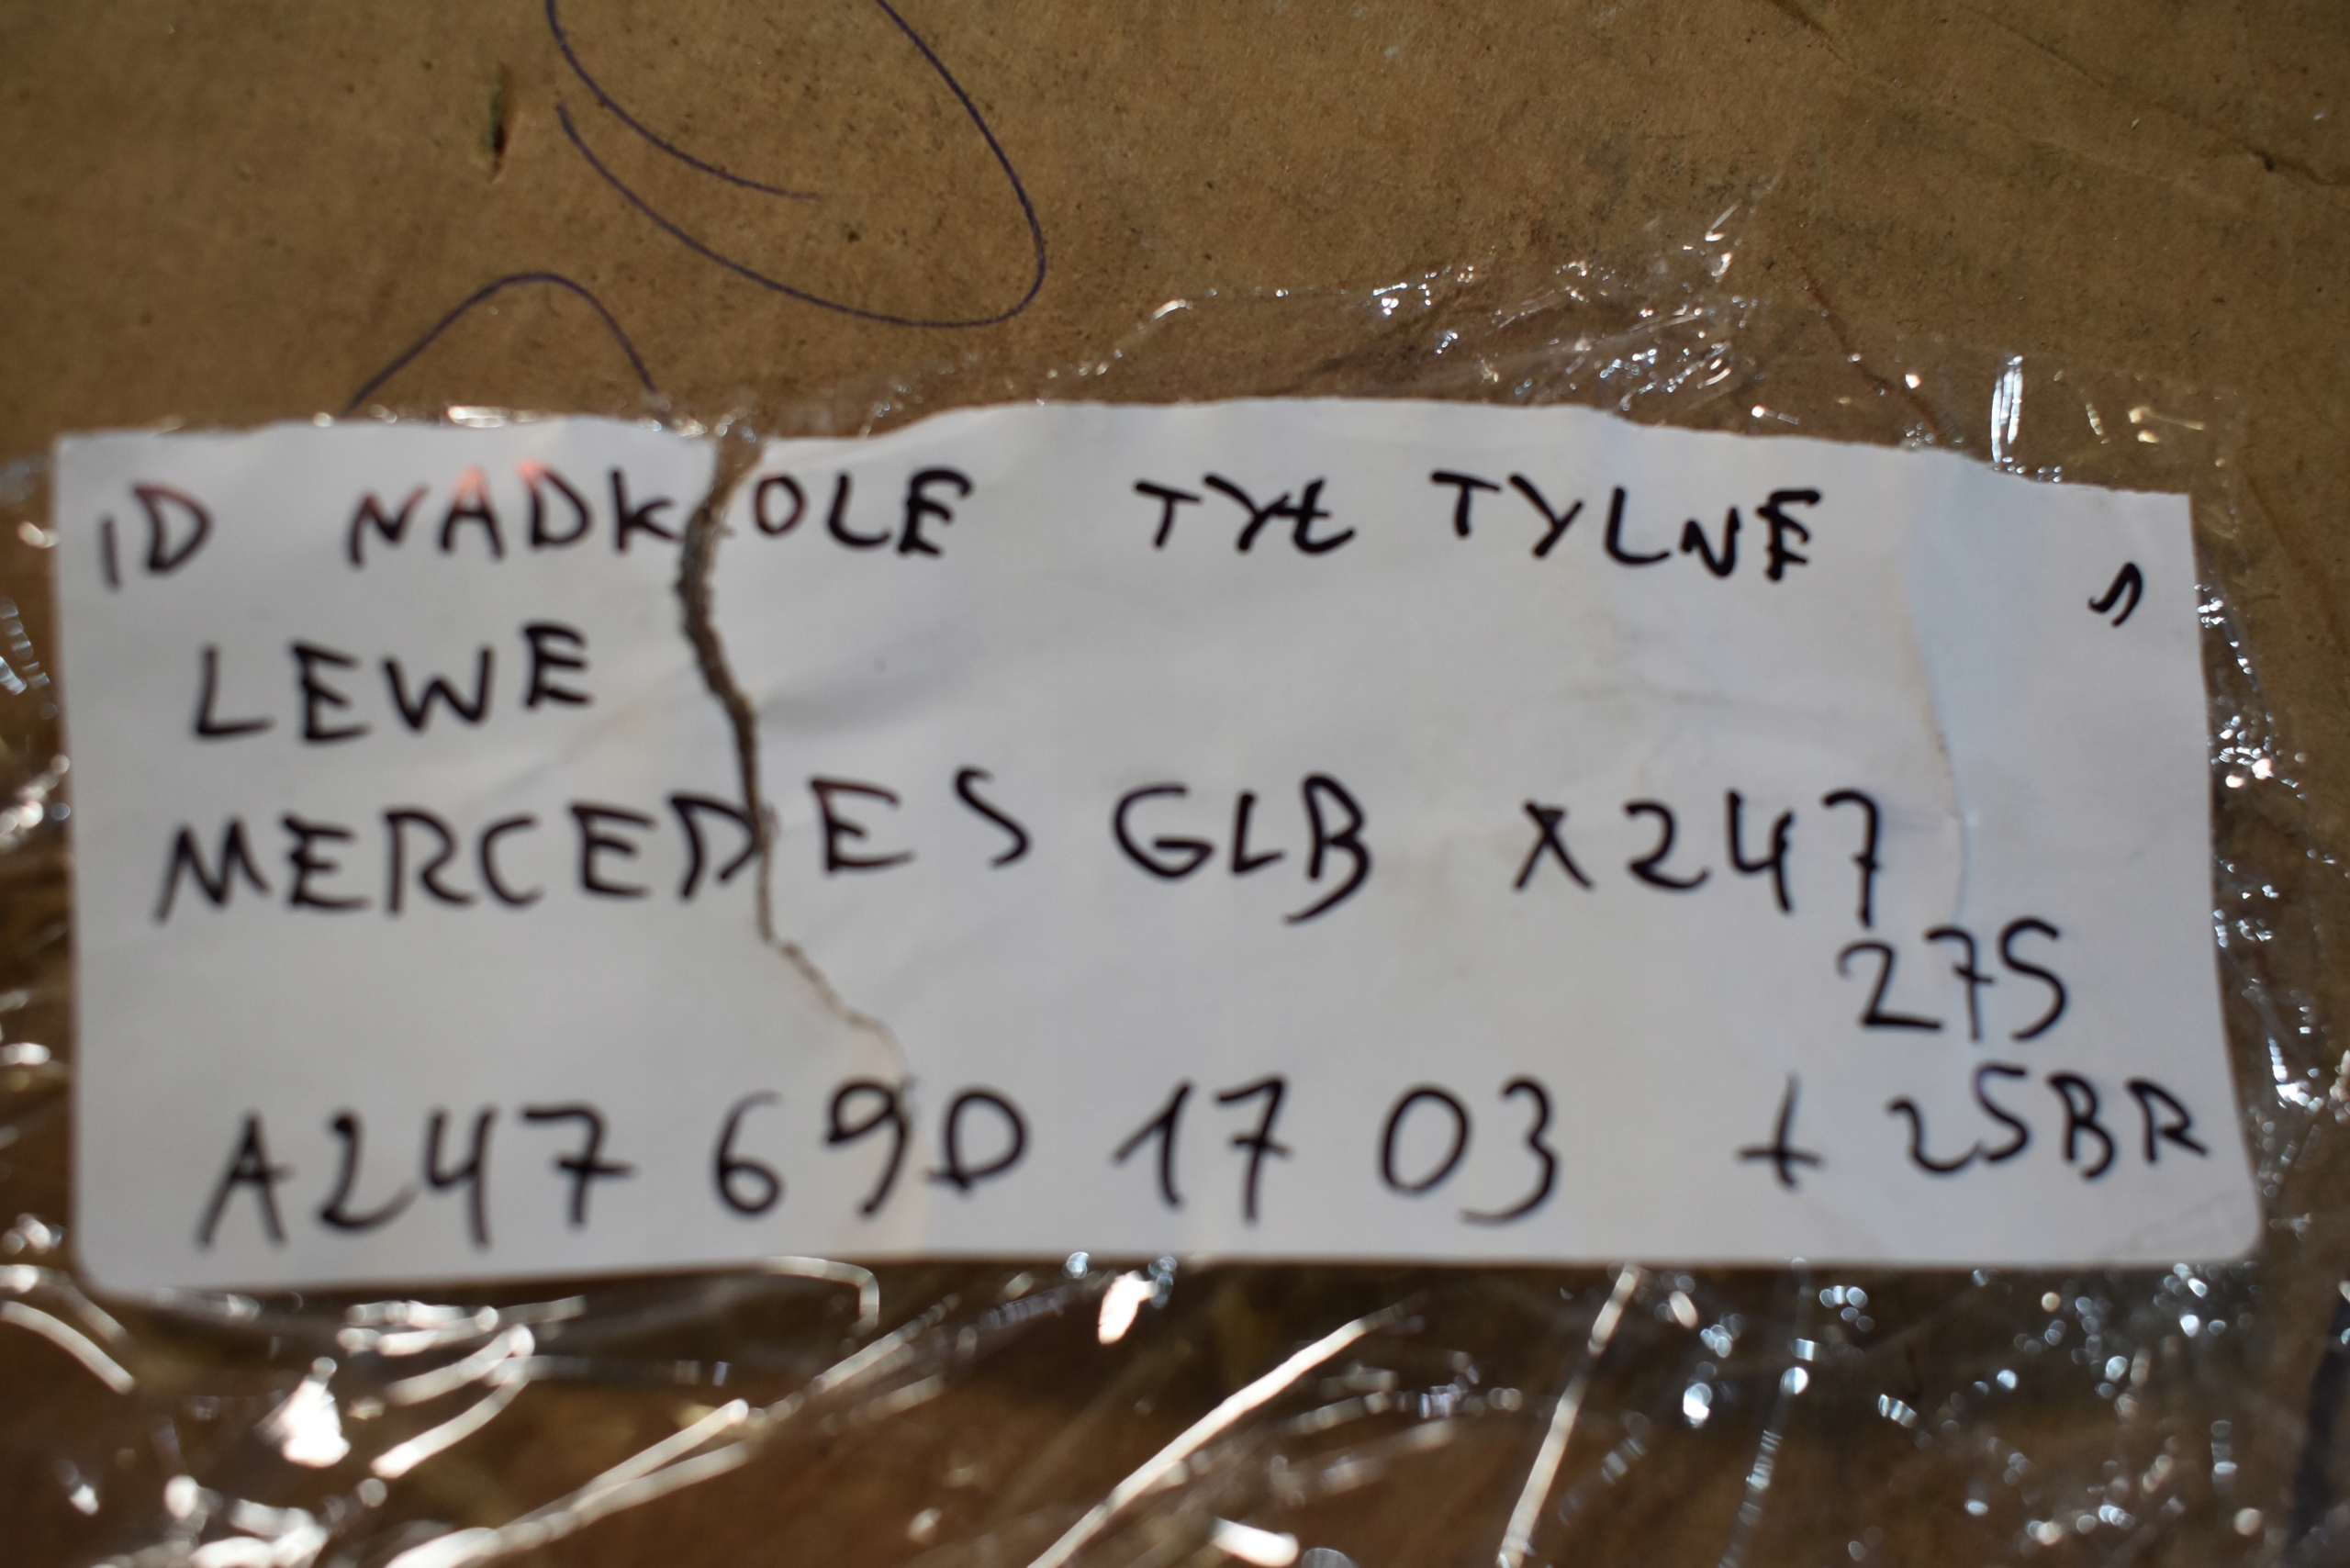 ID NADKOLE TYŁ TYLNE
LEWE
MERCEDES GLB X247
275
A247 690 17 03 + 25BR